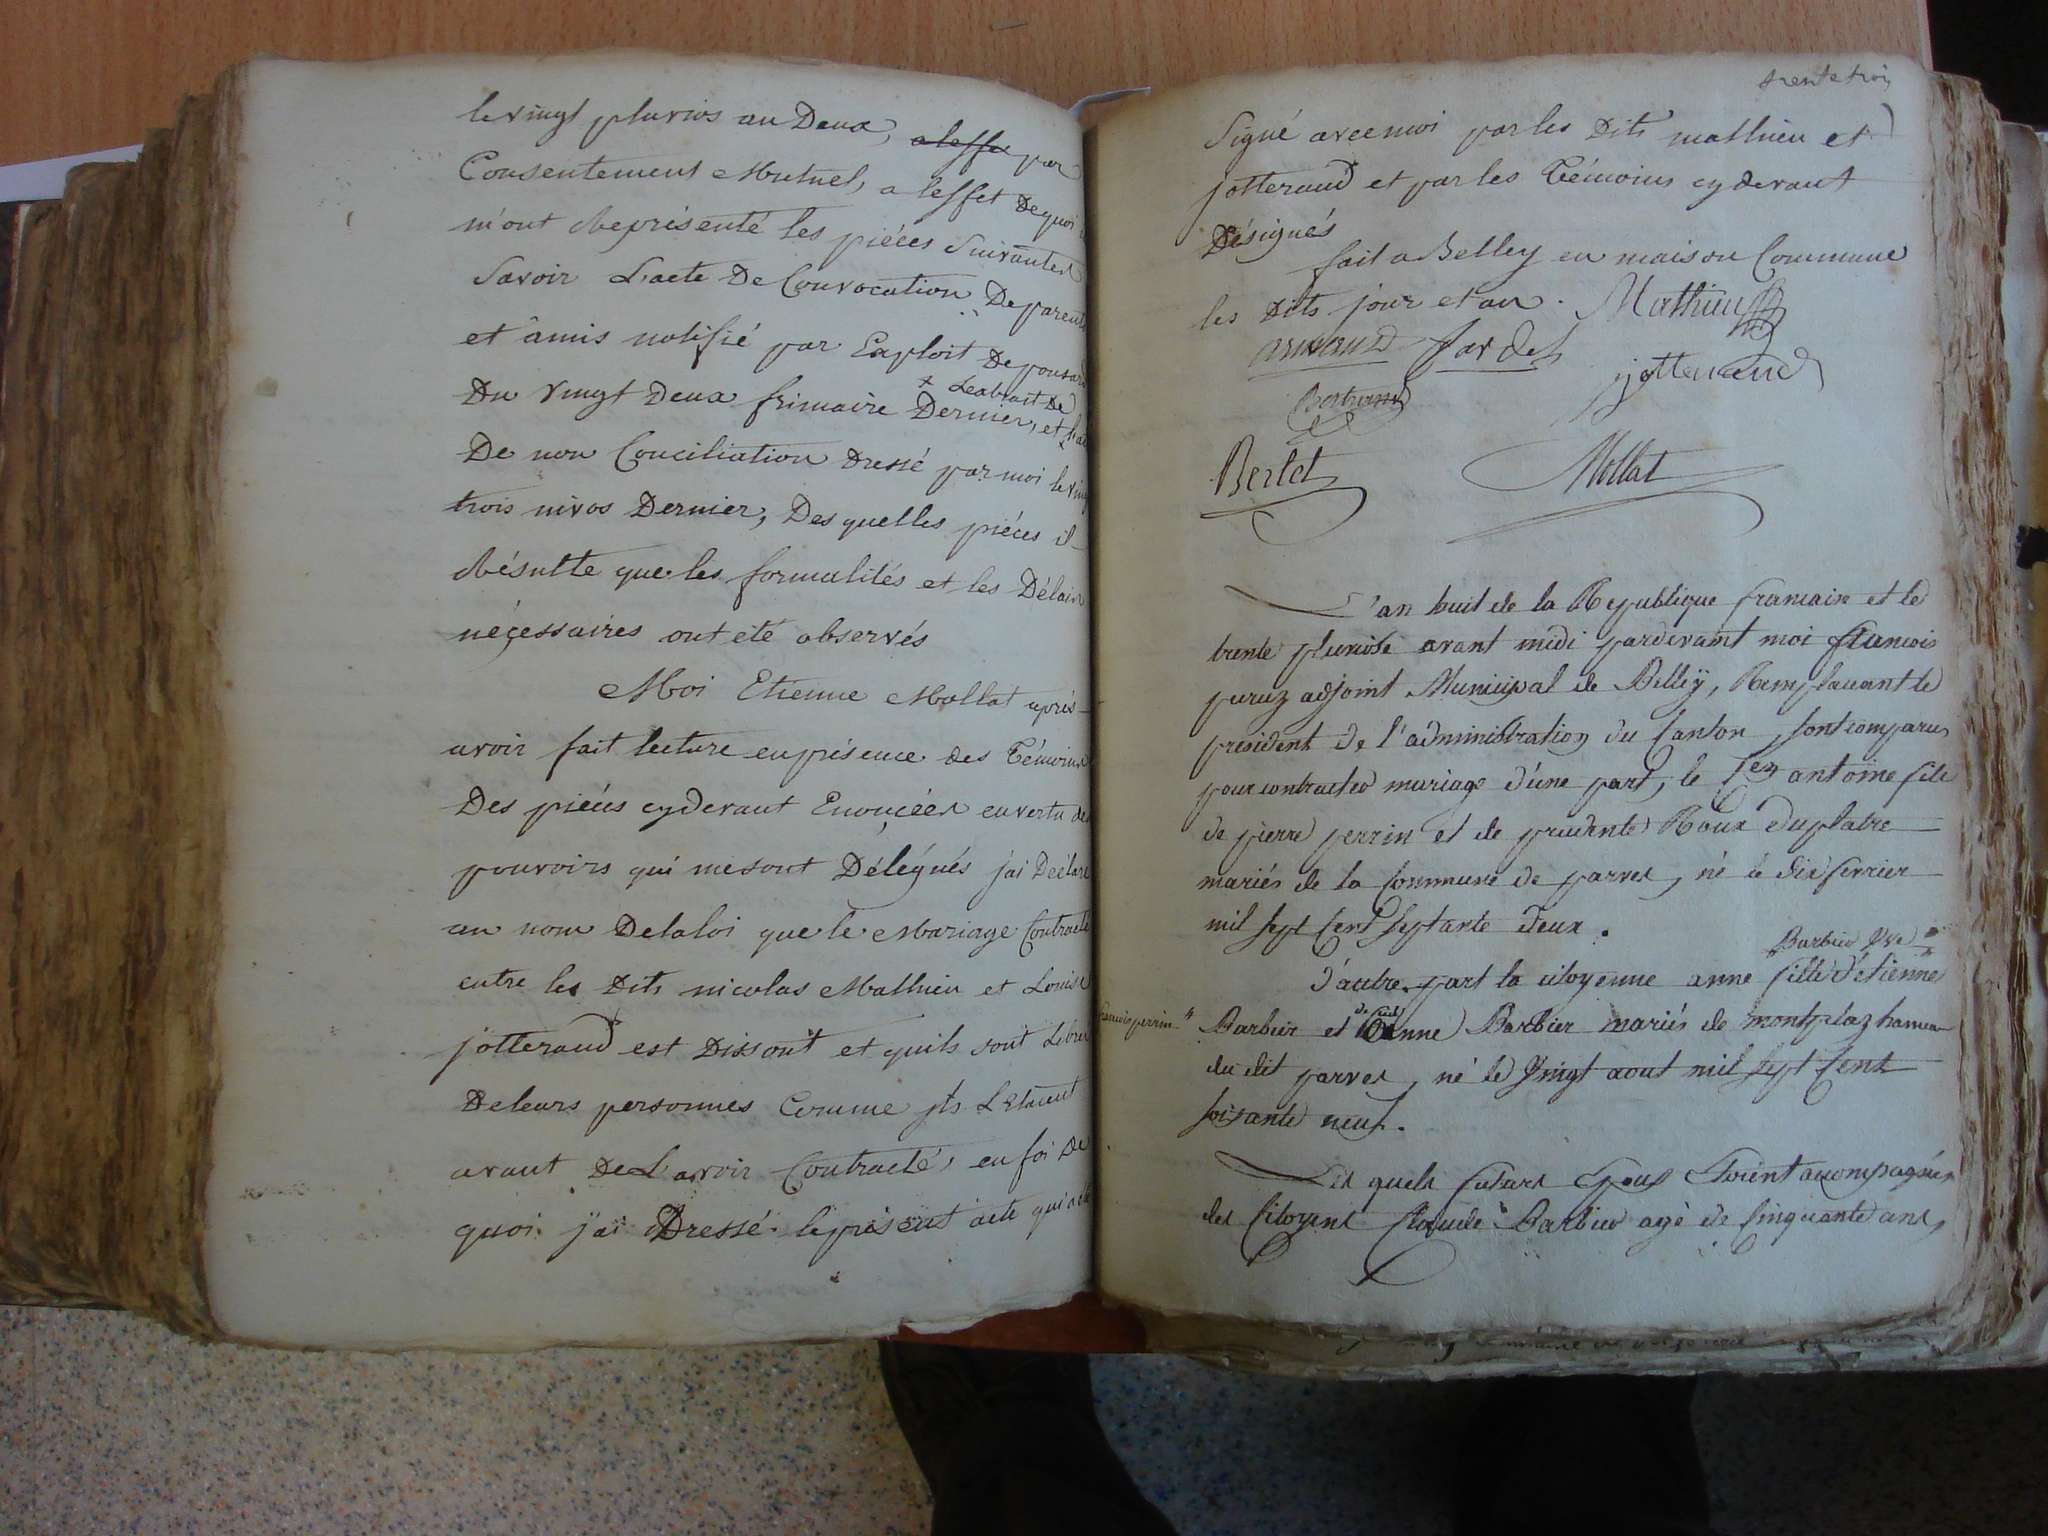 le vingt pluvios an Deux, a leffet par
Consentement Mutuel, a leffet De quoi
m'ont Représenté les piéces Suivantes
Savoir L'acte De Convocation De parents
et amis notifié par Exploit De ponsard
Du Vingt Deux frimaire Dernier, et
+ Lextrait De
De non Conciliation Dressé par moi le vingt
trois nivos Dernier, Des quelles piéces il
Résulte que les formalités et les Délais
néçessaires ont eté observés
Moi Etienne Mollat après
avoir fait lecture en présence des Témoins
Des piéces cydevant Enoncéés en vertu des
pouvoirs qui me sont Délégués j'ai Déclaré
au nom De la loi que le Mariage Contracté
entre les Dits nicolas Mathieu et Louise
jotteraud est Dissout et quils sont Libres
De leurs personnes Comme jls L'Etaient
avant De L'avoir Contracté, en foi De
quoi j'ai Dressé le présent acte qui a été
trente trois
Signé avec moi par les Dits mathieu et
jotteraud et par les Témoins cy devant
Désignés
fait a Belley en maison Commune
les Dits jour et an. Mathieu
arnaud Jardel
jotteraud
Bertrand
Berlet Mollat
L'an huit de la Republique francaise et le
trente pluviose avant midi pardevant moi francois
peruz adjoint Municipal de Belley, Remplacant le
président de l'administration du Canton, sont comparus
pour contracter mariage d'une part, le Cen antoine fils
de pierre perrin et de prudente Roux duplatre
mariés de la Commune de parves, né le dix fevrier
mil sept Cent Septante deux.
Barbier Vve
d'autre part la citoyenne anne fille d'étienne
francois perrin
Barbier et anne Barbier mariés de montplaz hameau
du dit parves, né le Vingt aout mil sept Cent
soixante neuf.
Les quels futurs Epoux Etoient accompagnés
des Citoyens Claude Barbier agé de Cinquante ans,